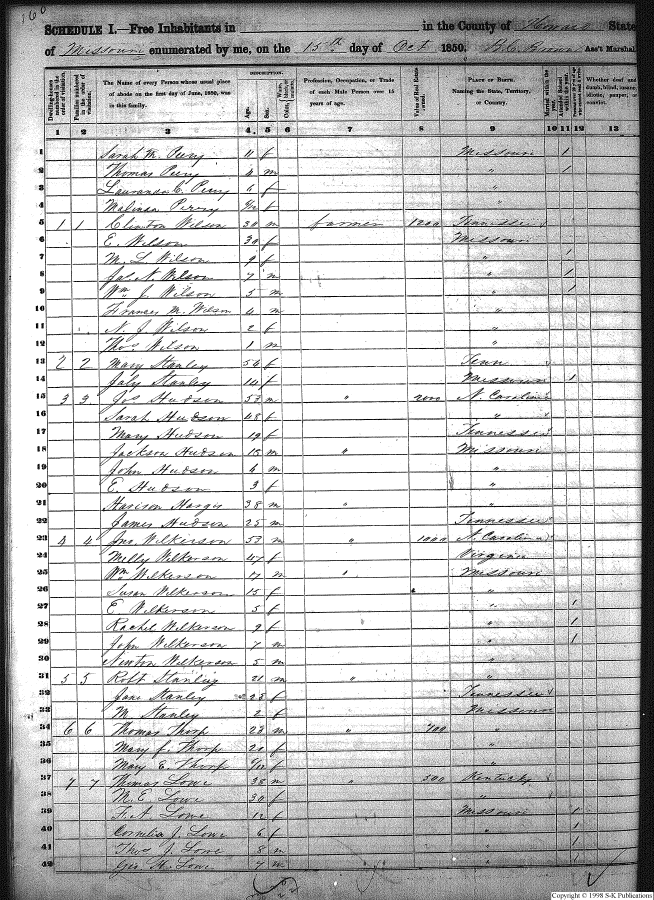 160
SCHEDULE I.—Free Inhabitants in in the County of Howard State
of Missouri enumerated by me, on the 15th day of Oct 1850. Ass't Marshal.
Dwelling-houses numbered in the order of visitation.
Families numbered in the order of visitation.
The Name of every Person whose usual place of abode on the first day of June, 1850, was in this family.
DESCRIPTION.
Age.
Sex.
Color,
Profession, Occupation, or Trade of each Male Person over 15 years of age.
Value of Real Estate owned.
PLACE OF BIRTH. Naming the State, Territory, or Country.
Married within the year.
Attended School within the year.
Whether deaf and dumb, blind, insane, idiotic, pauper, or convict.
1 2 3 4 5 6 7 8 9 10 11 12 13
1 Sarah M. Perry 11 f Missouri 1
2 Thomas Perry 4 m " 1
3 C. Perry 6 f "
4 Malinda Perry /12 f "
5 1 1 Clinton Wilson 30 m farmer 1200 Tennessee
6 E. Wilson 30 f Missouri
7 M. L. Wilson 9 f " 1
8 N. Wilson 7 m " 1
9 Wm J. Wilson 5 m " 1
10 Frances M. Wilson 4 m "
11 N. J. Wilson 2 f "
12 Thos Wilson 1 m "
13 2 2 Mary Stanley 54 f Tenn
14 Stanley 14 f Missouri 1
15 3 3 Jos Hudson 53 m " 2000 N. Carolina
16 Sarah Hudson 48 f "
17 Mary Hudson 19 f Tennessee
18 Jackson Hudson 18 m " Missouri
19 John Hudson 6 m "
20 E. Hudson 3 f "
21 Harison Hargis 38 m " "
22 James Hudson 25 m Tennessee
23 4 4 Jno. Wilkerson 53 m " 1000 N. Carolina
24 Milly Wilkerson 47 f Virginia
25 Wm Wilkerson 17 m " Missouri
26 Susan Wilkerson 15 f "
27 E. Wilkerson 5 f " 1
28 Rachel Wilkerson 9 f " 1
29 John Wilkerson 7 m " 1
30 Newton Wilkerson 5 m "
31 5 5 Robt Stanley 21 m " "
32 Jane Stanley 25 f Tennessee
33 M. Stanley 2 f Missouri
34 6 6 Thomas Thorp 23 m " 400 "
35 Mary f. Thorp 20 f "
36 Mary E. Thorp /12 f "
37 7 7 Thomas Lowe 38 m " 500 Kentucky
38 M. E. Lowe 30 f "
39 F. A. Lowe 12 f Missouri 1
40 Cornelia J. Lowe 6 f " 1
41 Thos J. Lowe 8 m " 1
42 Geo H. Lowe 7 m " 1
Copyright © 1998 S-K Publications